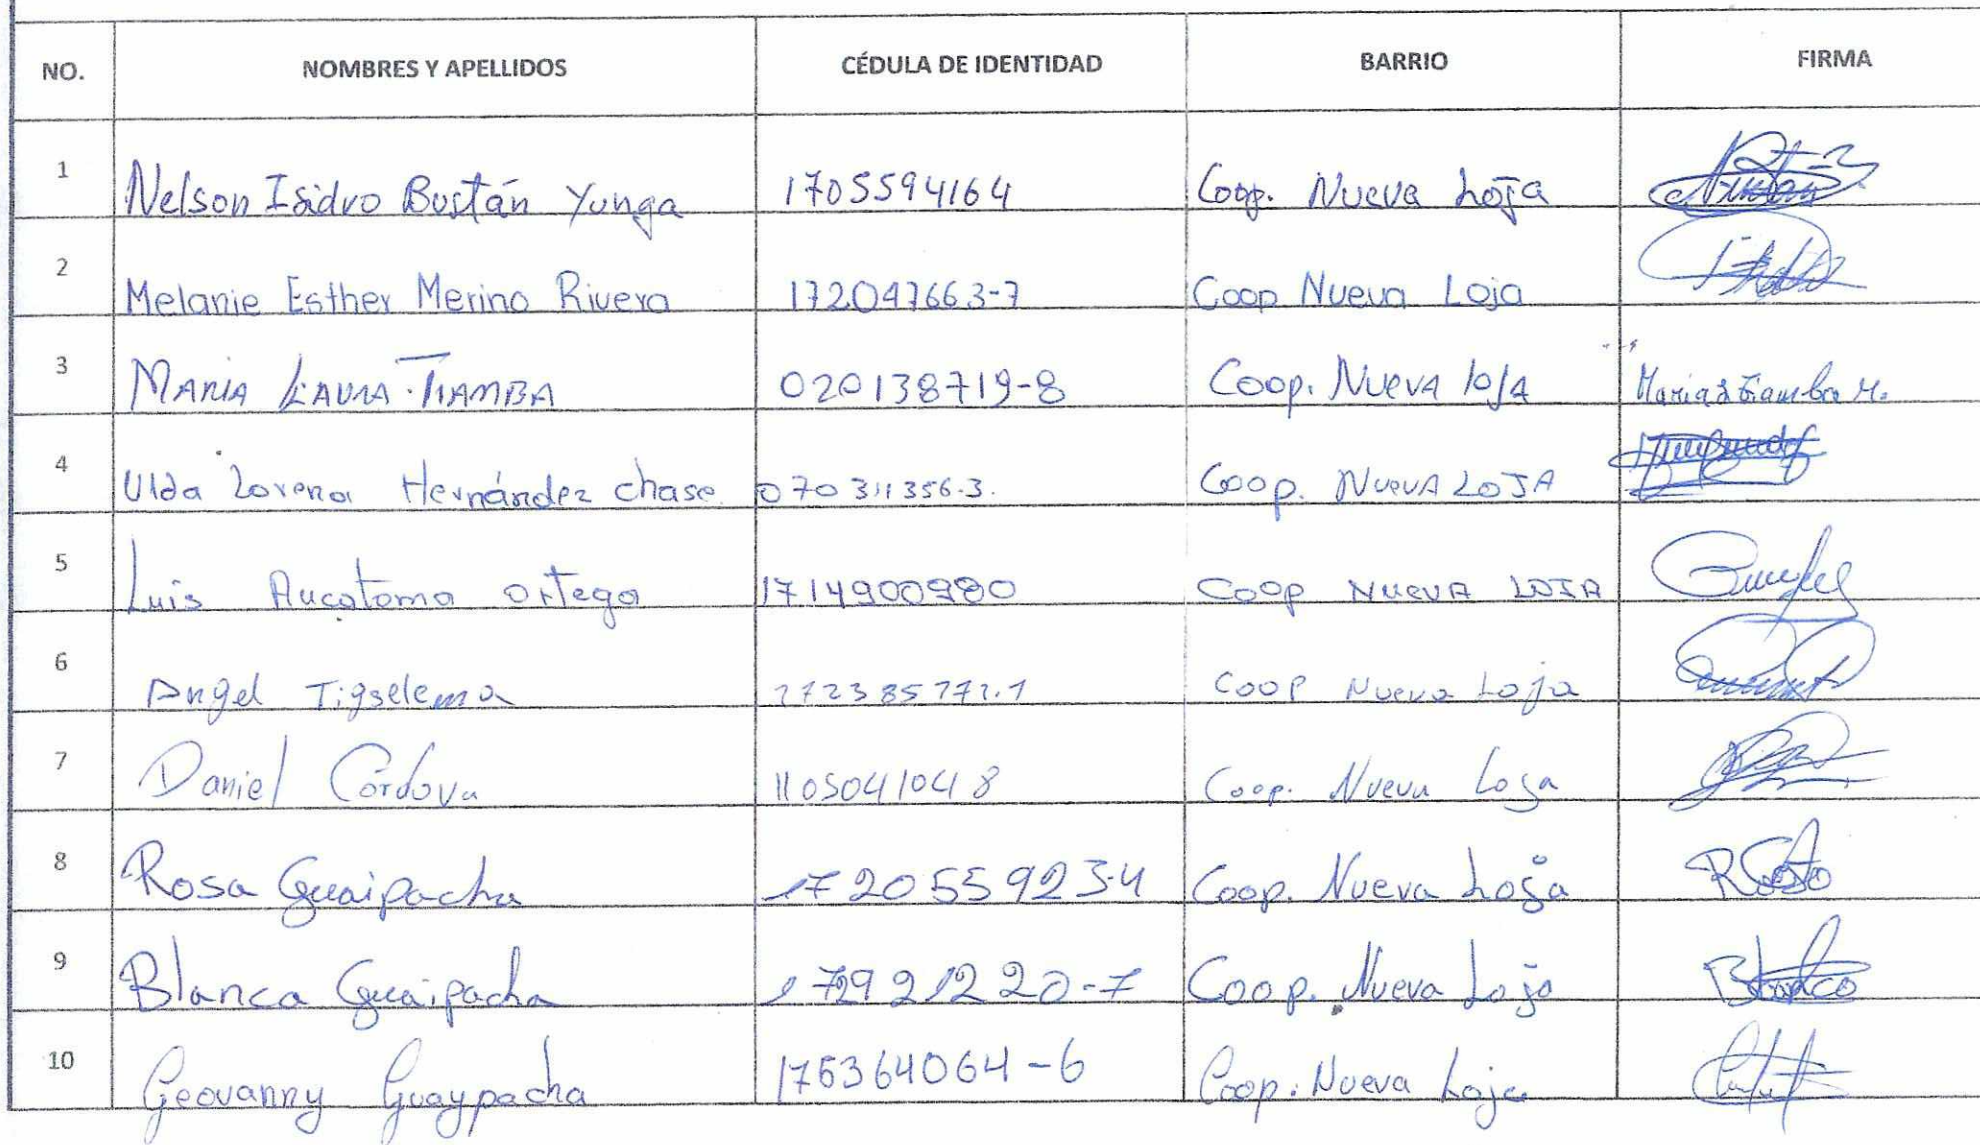 NO. NOMBRES Y APELLIDOS CÉDULA DE IDENTIDAD BARRIO FIRMA
1 Nelson Isidro Bustán Yunga 1705594164 Coop. Nueva Loja
2 Melanie Esther Merino Rivera 172047663-7 Coop Nueva Loja
3 MARIA LAURA TIAMBA 020138719-8 Coop. NUEVA lojA Maria
4 Ulda Lorena Hernández chase 070311356.3. Coop. NUEVA LOJA
5 Luis Aucatoma ortega 1714900980 Coop NUEVA LOJA
6 Angel Tigselema Coop Nueva Loja
7 Daniel Córdova 1105041048 Coop. Nueva Loja
8 Rosa Guaipacha 172055923-4 Coop. Nueva Loja
9 Blanca Guaipacha Coop. Nueva Loja
10 Geovanny Guaypacha 175364064-6 Coop. Nueva Loja